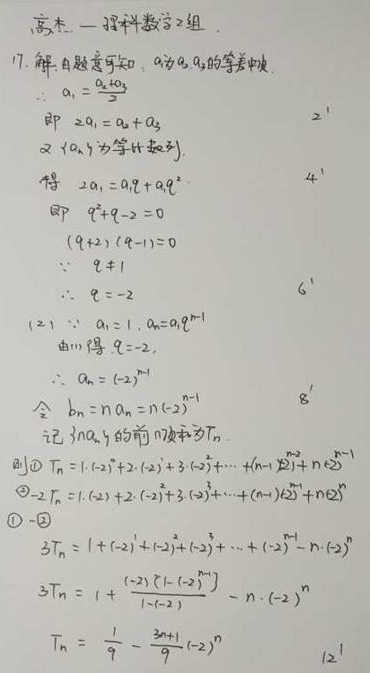 高杰一理科数学2组.
17.解:由题意可知,a₁为a₂.a₃的等差中项.
∴ a₁ = (a₂+a₃)/2
即 2a₁ = a₂ + a₃ 2'
又{aₙ}为等比数列,
得 2a₁ = a₁q + a₁q² 4'
即 q²+q-2=0
(q+2)(q-1)=0
∵ q≠1
∴ q=-2 6'
(2) ∵ a₁=1, aₙ=a₁qⁿ⁻¹
由(1)得 q=-2,
∴ aₙ=(-2)ⁿ⁻¹ 8'
令 bₙ = naₙ = n(-2)ⁿ⁻¹
记{naₙ}的前n项和为Tₙ.
则① Tₙ = 1·(-2)⁰+2·(-2)¹+3·(-2)²+…+(n-1)(-2)ⁿ⁻²+n(-2)ⁿ⁻¹
②-2Tₙ = 1·(-2)+2·(-2)²+3·(-2)³+…+(n-1)(-2)ⁿ⁻¹+n(-2)ⁿ
①-②
3Tₙ = 1+(-2)¹+(-2)²+(-2)³+…+(-2)ⁿ⁻¹-n·(-2)ⁿ
3Tₙ = 1 + (-2)[1-(-2)ⁿ⁻¹]/(1-(-2)) - n·(-2)ⁿ
Tₙ = 1/9 - (3n+1)/9 (-2)ⁿ 12'